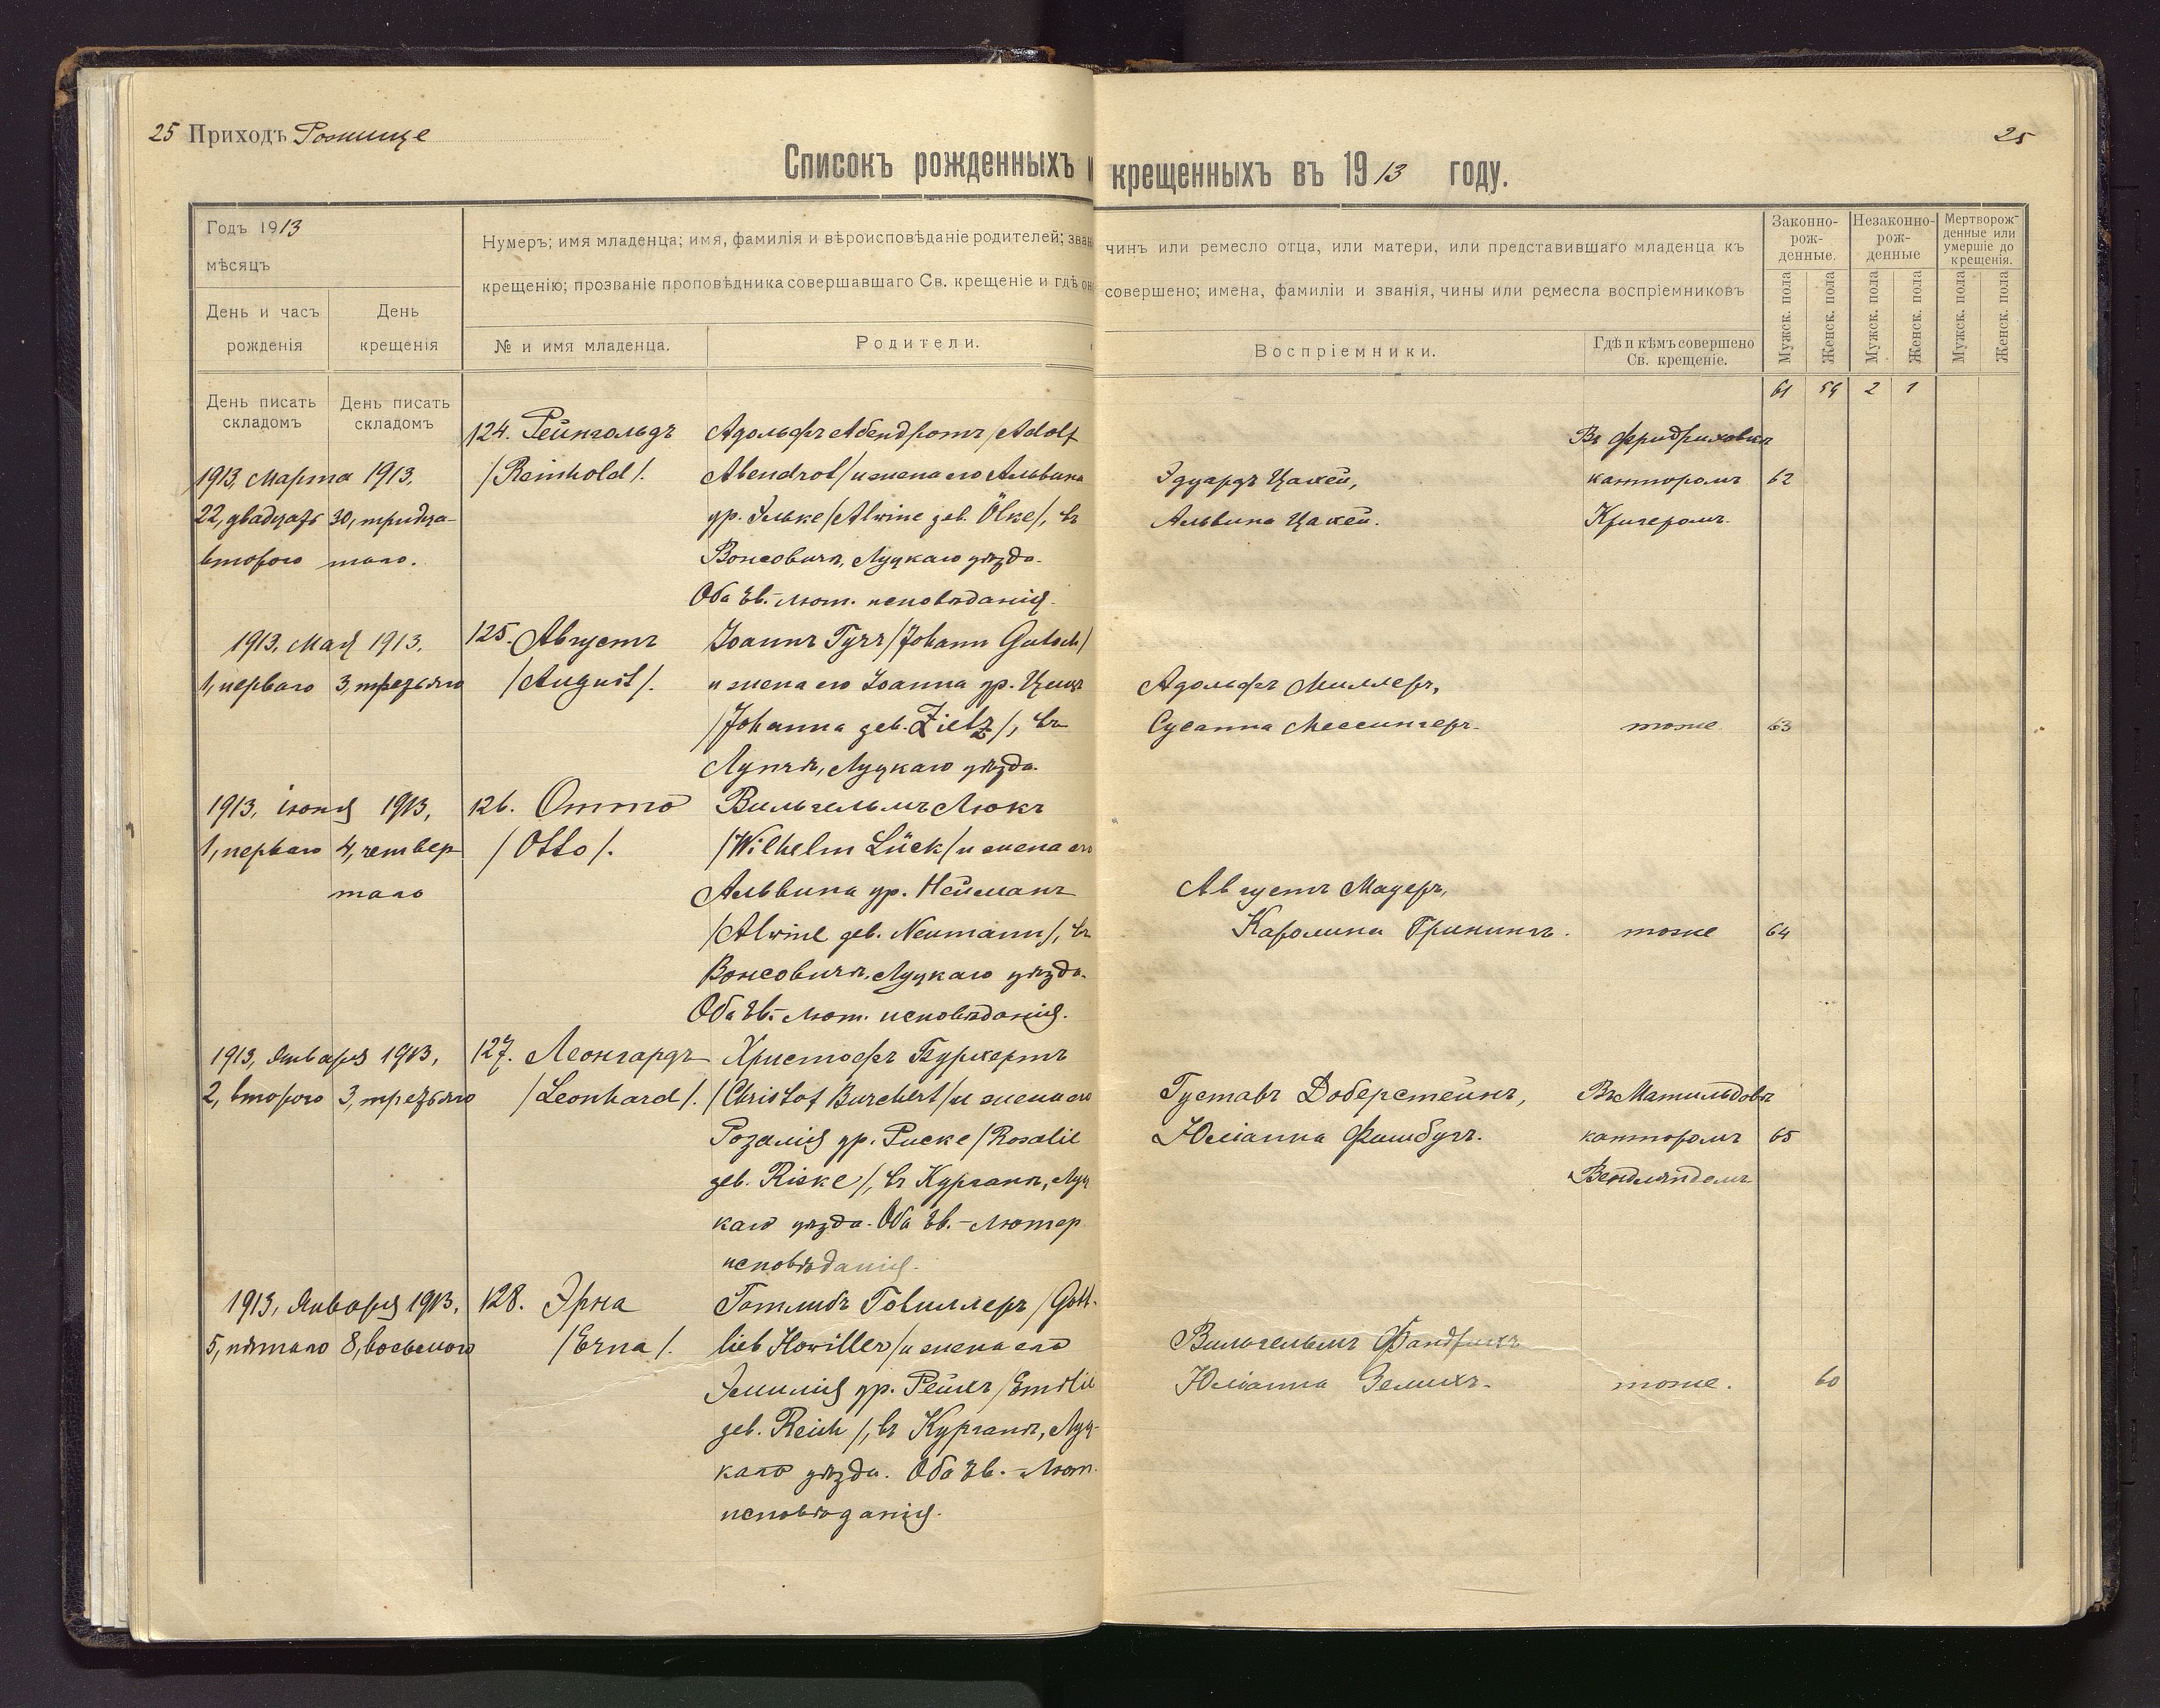 25 Приходъ Рожище
25
Списокъ рожденныхъ и крещенныхъ въ 1913 году.
Годъ 1913
мѣсяцъ
День и часъ рожденія
День крещенія
Нумеръ; имя младенца; имя, фамилія и вѣроисповѣданіе родителей; зван чинъ или ремесло отца, или матери, или представившаго младенца къ
крещенію; прозваніе проповѣдника совершавшаго Св. крещеніе и гдѣ он совершено; имена, фамиліи и званія, чины или ремесла воспріемниковъ
№ и имя младенца.
Родители.
Воспріемники.
Гдѣ и кѣмъ совершено
Св. крещеніе.
Законно-
рож-
денные.
Незаконно-
рож-
денные
Мертворож-
денные или
умершіе до
крещенія.
Мужск. пола
Женск. пола
Мужск. пола
Женск. пола
Мужск. пола
Женск. пола
День писать
складомъ
День писать
складомъ
61 59 2 1
1913, Марта 1913,
22, двадцать 30, тридца-
второго таго.
124. Рейнгольдъ
/Reinhold/.
Адольфъ Абендротъ /Adolf
Abendrot/ и жена его Альвина
ур. Эльке /Alwine geb. Ölke/, въ
Вонсовичѣ, Луцкаго уѣзда.
Оба Ев.-лют. исповѣданія.
Эдуардъ Цахеи,
Альвина Цахеи.
Въ Фридриховкѣ
канторомъ
Кригеромъ.
62
1913, Мая 1913,
1, перваго 3, третьяго
125. Августъ
/August/.
Іоаннъ Гучъ /Johann Gutsch/
и жена его Іоанна ур. Цицъ
/Johanna geb. Zietz/, въ
Лупчѣ, Луцкаго уѣзда.
Адольфъ Миллеръ,
Сусанна Мессингеръ.
тоже
63
1913, іюня 1913,
1, перваго 4, четвер
таго
126. Отто
/Otto/.
Вильгельмъ Люкъ
/Wilhelm Lück/ и жена его
Альвина ур. Нейманъ
/Alwine geb. Neumann/, въ
Вонсовичѣ, Луцкаго уѣзда.
Оба Ев.-лют. исповѣданія.
Августъ Мадеръ,
Каролина Грининъ.
тоже
64
1913, Января 1913,
2, второго 3, третьяго
127. Леонгардъ
/Leonhard/.
Христофъ Бурхертъ
/Christof Burchert/ и жена его
Розалія ур. Риске /Rosalie
geb. Riske/, въ Курганѣ, Луц
каго уѣзда. Оба Ев.-лютер
исповѣданія.
Густавъ Доберстейнъ,
Юліанна Фишбухъ.
Въ Матильдовѣ
канторомъ
Вендляндомъ
65
1913, Января 1913,
5, пятаго 8, восьмого
128. Эрна
/Erna/.
Готлибъ Говиллеръ /Gott-
lieb Howiller/ и жена его
Эмилія ур. Рейхъ /Emilie
geb. Reich/, въ Курганѣ, Луц-
каго уѣзда. Оба Ев.-лют.
исповѣданія.
Вильгельмъ Фандрихъ
Юліанна Земихъ.
тоже.
60